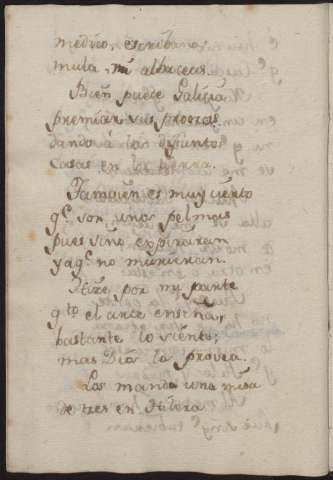 medico, escribano,
mula, ni albaceas.
Bien puede Galicia
premiar sus proezas
dando á los difuntos
casas en la tierra.
Tambien es muy cierto
qe. son unos pelmas
pues sino expiraran
yaqe. no murieran.
Hize por mi parte
qto. el arte enseña,
bastante lo siento;
mas Dios la provea.
Los mando una misa
de tres en